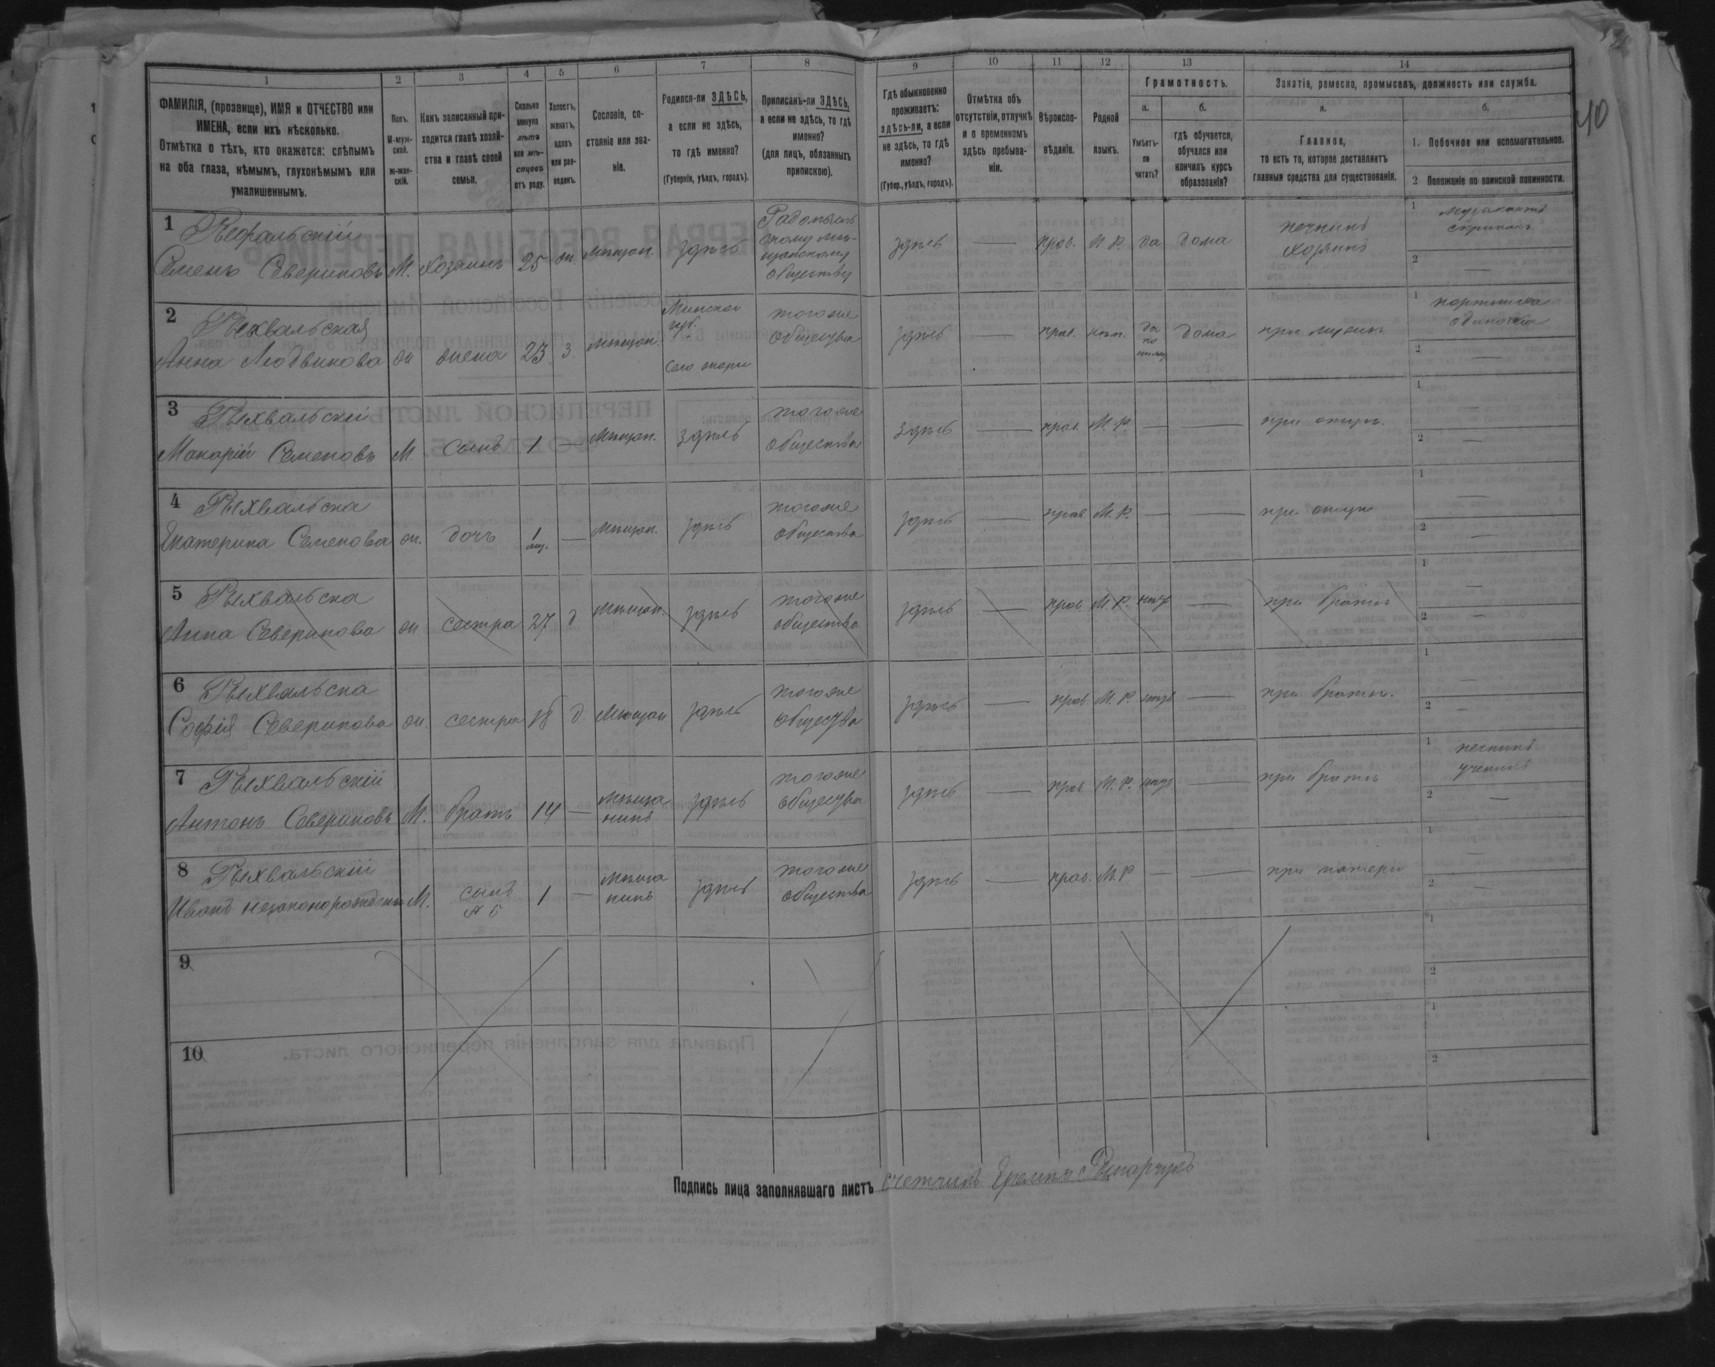 1 2 3 4 5 6 7 8 9 10 11 12 13 14
ФАМИЛІЯ, (прозвище), ИМЯ и ОТЧЕСТВО или
ИМЕНА, если ихъ нѣсколько.
Отмѣтка о тѣхъ, кто окажется: слѣпымъ
на оба глаза, нѣмымъ, глухонѣмымъ или
умалишеннымъ.
Полъ.
М-муж-
ской.
ж-жен-
скій.
Какъ записанный при-
ходится главѣ хозяй-
ства и главѣ своей
семьи.
Сколько
минуло
лѣтъ
или мѣ-
сяцевъ
отъ роду.
Холостъ,
женатъ,
вдовъ
или раз-
веденъ.
Сословіе, со-
стояніе или зва-
ніе.
Родился-ли ЗДѢСЬ,
а если не здѣсь,
то гдѣ именно?
(Губернія, уѣздъ, городъ).
Приписанъ-ли ЗДѢСЬ,
а если не здѣсь, то гдѣ
именно?
(для лицъ, обязанныхъ
припискою).
Гдѣ обыкновенно
проживаетъ:
здѣсь-ли, а если
не здѣсь, то гдѣ
именно?
(Губер., уѣздъ, городъ).
Отмѣтка объ
отсутствіи, отлучкѣ
и о временномъ
здѣсь пребыва-
ніи.
Вѣроиспо-
вѣданіе.
Родной
языкъ.
Грамотность.
а. б.
Умѣетъ-
ли
читать?
гдѣ обучается,
обучался или
кончилъ курсъ
образованія?
Занятіе, ремесло, промыселъ, должность или служба.
а. б.
Главное,
то есть то, которое доставляетъ
главныя средства для существованія.
1. Побочное или вспомогательное.
2 Положеніе по воинской повинности.
40
1
Семенъ Севериновъ М. хозяинъ 25 ж. мѣщан. здѣсь
обществу
здѣсь — прав. М.Р. да дома
печникъ
хозяинъ
1
2 —
2 Рыхвальская
Анна Людвикова ж жена 23 з мѣщан.
Минской
губ.
тогоже
общества
здѣсь — прав. да дома
1 портниха
одиночка
2 —
3 Рыхвальскій
Макарій Семеновъ М сынъ 1 мѣщан. здѣсь
тогоже
общества
здѣсь — прав. М.Р — — при отцѣ.
1 —
2 —
4 Рыхвальска
Екатерина Семенова ж. дочь 1 — мѣщан. здѣсь
тогоже
общества
здѣсь — прав М.Р. — — при отцѣ
1 —
2 —
5 Рыхвальска
Анна Северинова ж сестра 27 д мѣщан. здѣсь
тогоже
общества
здѣсь — прав М.Р. нѣт — при братѣ
1 —
2 —
6 Рыхвальска
Софія Северинова ж. сестра 18 д мѣщан здѣсь
тогоже
общества
здѣсь — прав. М.Р. нѣт — при братѣ.
1 —
2 —
7 Рыхвальскій
Антонъ Севериновъ М. братъ 14 —
мѣща
нинъ
здѣсь
тогоже
общества
здѣсь — прав М.Р. нѣт — при братѣ
1 печникъ
ученикъ
2 —
8 Рыхвальскій
Иванъ незаконорожден М. сынъ
№ 6
1 —
мѣща
нинъ
здѣсь
тогоже
общества
здѣсь — прав. М.Р — — при матери
1 —
2 —
9
1
2
10
1
2
Подпись лица заполнявшаго листъ счетчикъ